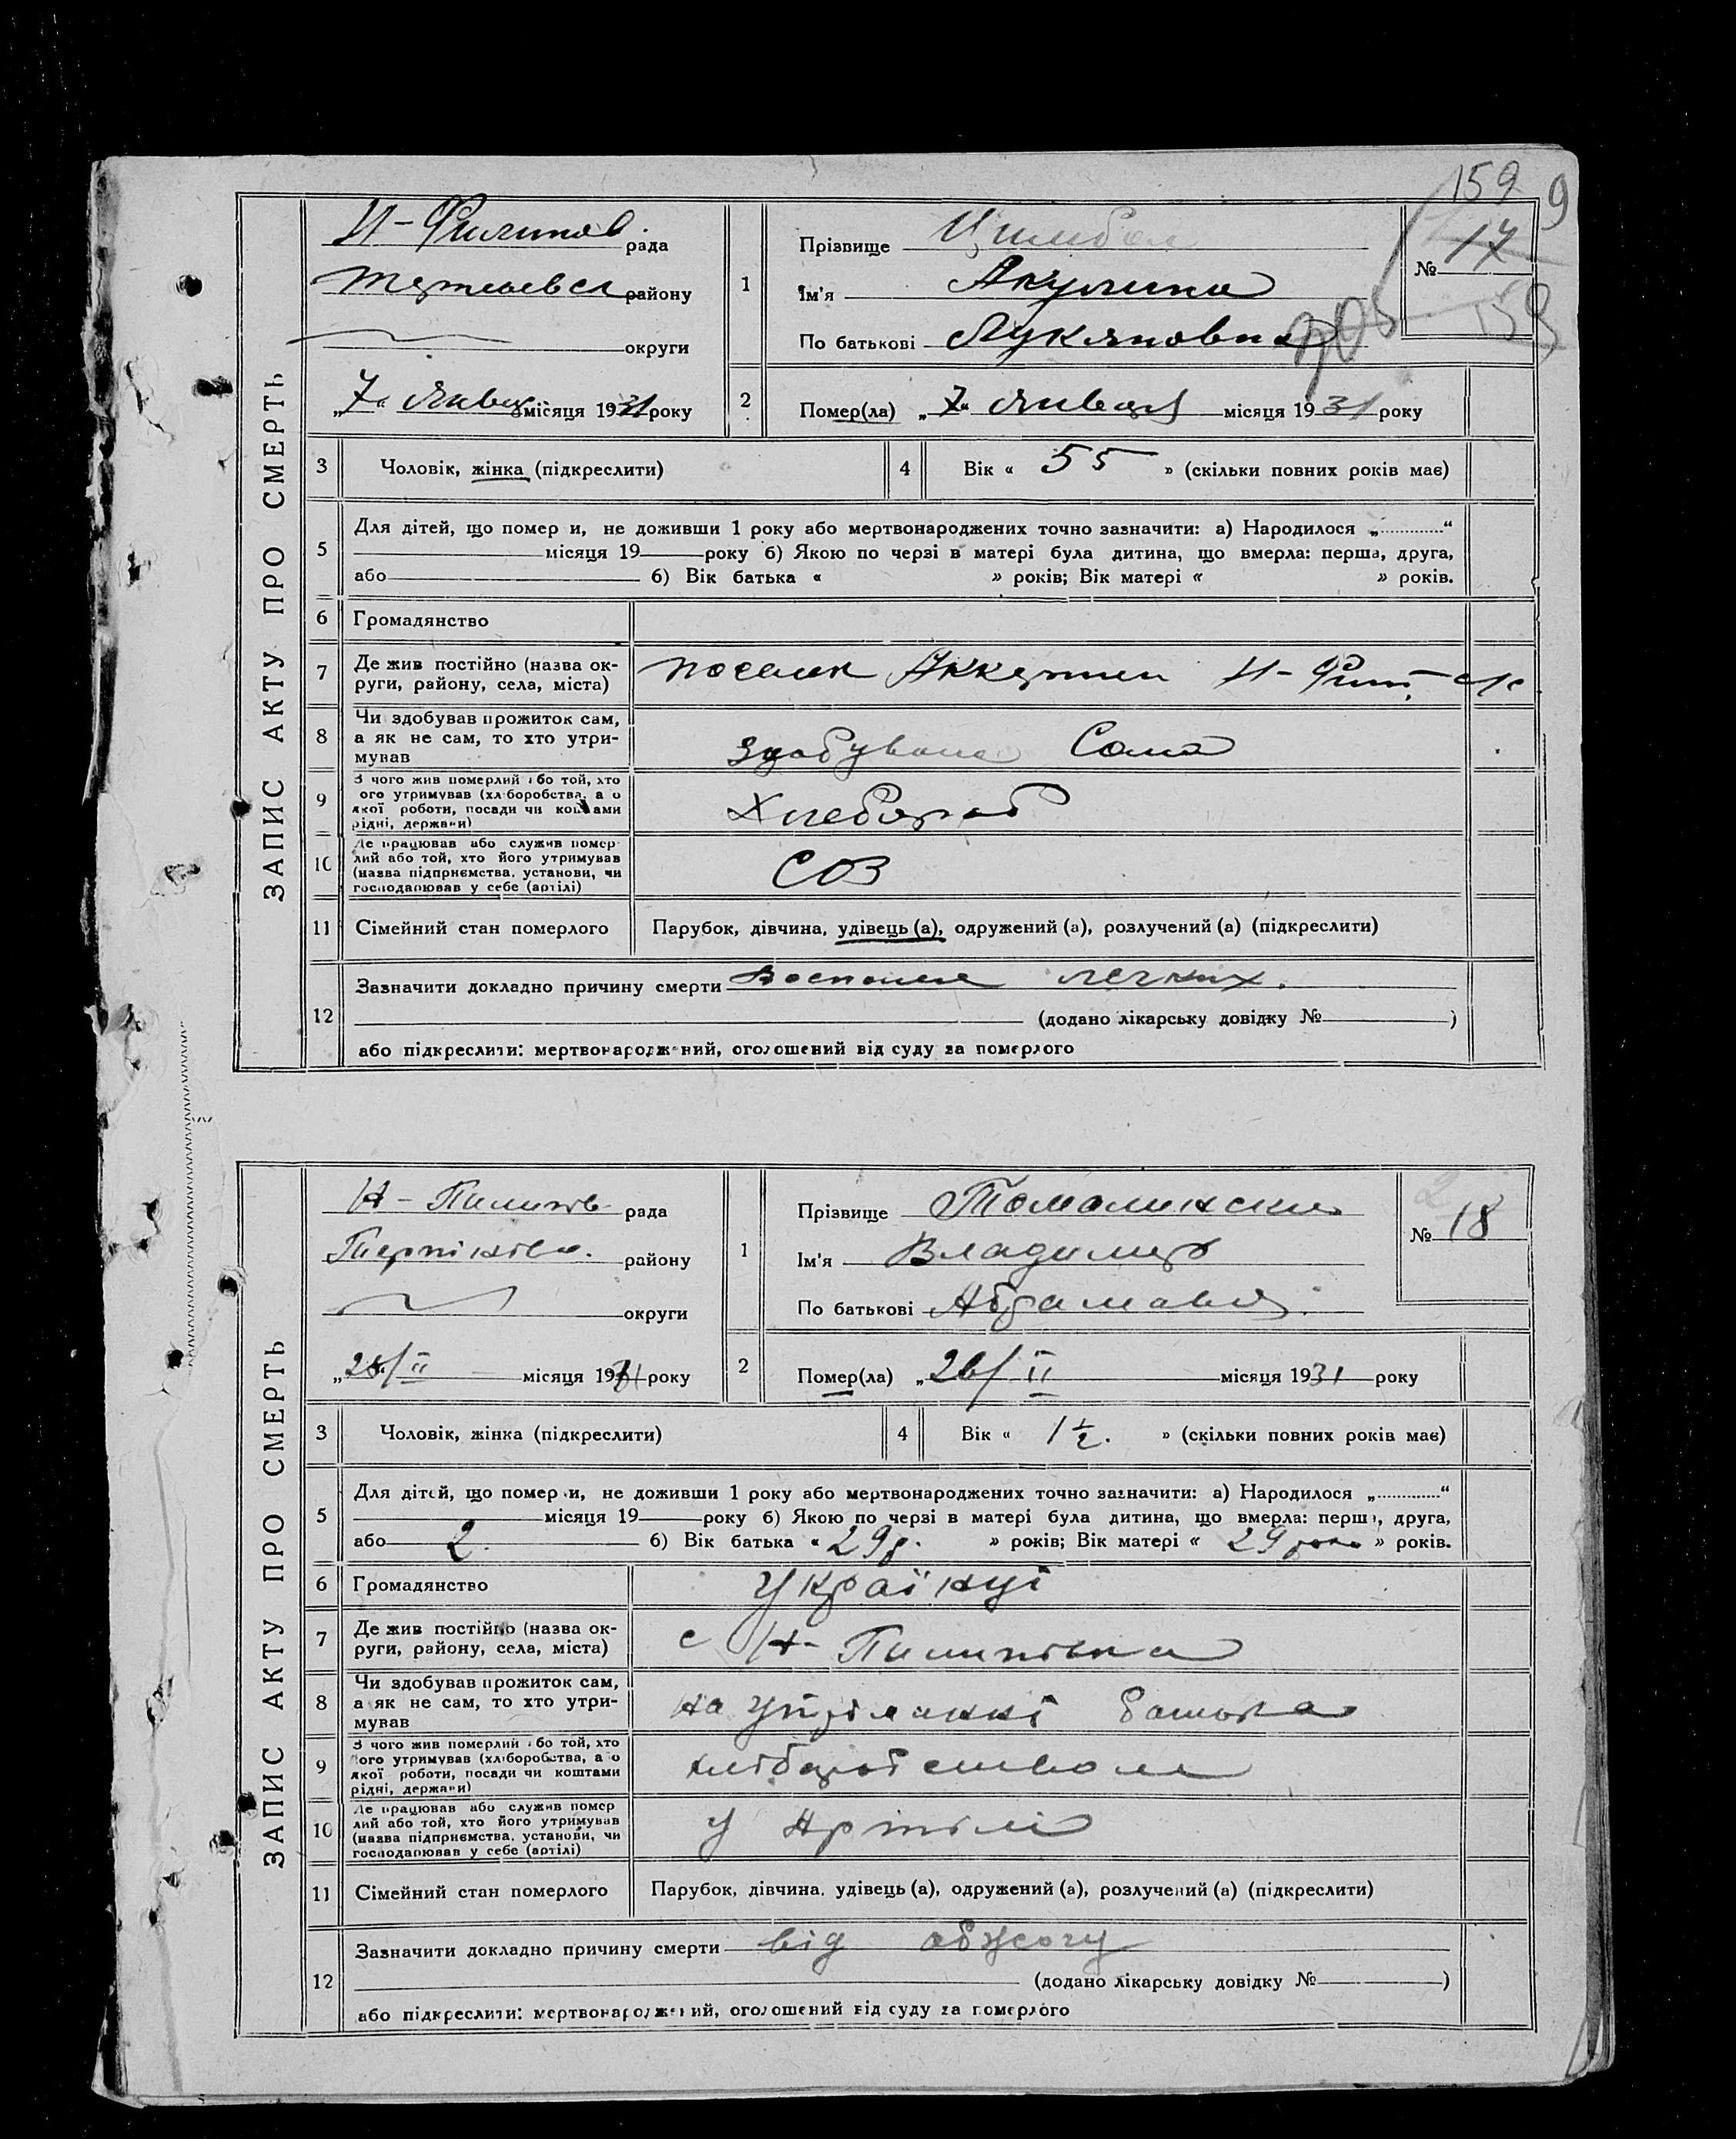 159 9
ЗАПИС АКТУ ПРО СМЕРТЬ
Н-Филипов. рада
району
округи
„7“ Января місяця 1931 року
1
Прізвище Цимбал
Ім'я Акулина
По батькові Лукяновна
№ 17
159
2
Помер(ла) „7“ Января місяця 1931 року
3 Чоловік, жінка (підкреслити)
4 Вік « 55 » (скільки повних років має)
5
Для дітей, що помер и, не доживши 1 року або мертвонароджених точно зазначити: а) Народилося „............“
місяця 19 року б) Якою по черзі в матері була дитина, що вмерла: перша, друга,
або б) Вік батька « » років; Вік матері « » років.
6 Громадянство
7
Де жив постійно (назва ок-
руги, району, села, міста)
поселк Аккермен Н-Фил. с/с
8
Чи здобував прожиток сам,
а як не сам, то хто утри-
мував
здобувала Сама
9
З чого жив померлий або той, хто
ого утримував (хліборобства, а о
якої роботи, посади чи коштами
рідні, держави)
Хлебороб
10
Де працював або служив помер
лий або той, хто його утримував
(назва підприємства, установи, чи
господарював у себе (артілі)
СОЗ
11 Сімейний стан померлого Парубок, дівчина, удівець (а), одружений (а), розлучений (а) (підкреслити)
12
Зазначити докладно причину смерти Воспаления легких.
(додано лікарську довідку № )
або підкреслити: мертвонароджений, оголошений від суду за померлого
ЗАПИС АКТУ ПРО СМЕРТЬ
Н-Пилипів рада
Терпінівс. району
округи
„28/II місяця 1931 року
1
Прізвище Томолинский
Ім'я Владимир
По батькові Абрамович
№ 18
2
Помер(ла) „26/II місяця 1931 року
3 Чоловік, жінка (підкреслити)
4 Вік « 1½. » (скільки повних років має)
5
Для дітей, що помер и, не доживши 1 року або мертвонароджених точно зазначити: а) Народилося „............“
місяця 19 року б) Якою по черзі в матері була дитина, що вмерла: перша, друга,
або 2. б) Вік батька « 29 р. » років; Вік матері « 29 роки » років.
6 Громадянство Українці
7
Де жив постійно (назва ок-
руги, району, села, міста)
с Н-Пилипівка
8
Чи здобував прожиток сам,
а як не сам, то хто утри-
мував
на утріманні батька
9
З чого жив померлий або той, хто
ого утримував (хліборобства, а о
якої роботи, посади чи коштами
рідні, держави)
хліборобством
10
Де працював або служив помер
лий або той, хто його утримував
(назва підприємства, установи, чи
господарював у себе (артілі)
у Артілі
11 Сімейний стан померлого Парубок, дівчина, удівець (а), одружений (а), розлучений (а) (підкреслити)
12
Зазначити докладно причину смерти від обжогу
(додано лікарську довідку № )
або підкреслити: мертвонароджений, оголошений від суду за померлого